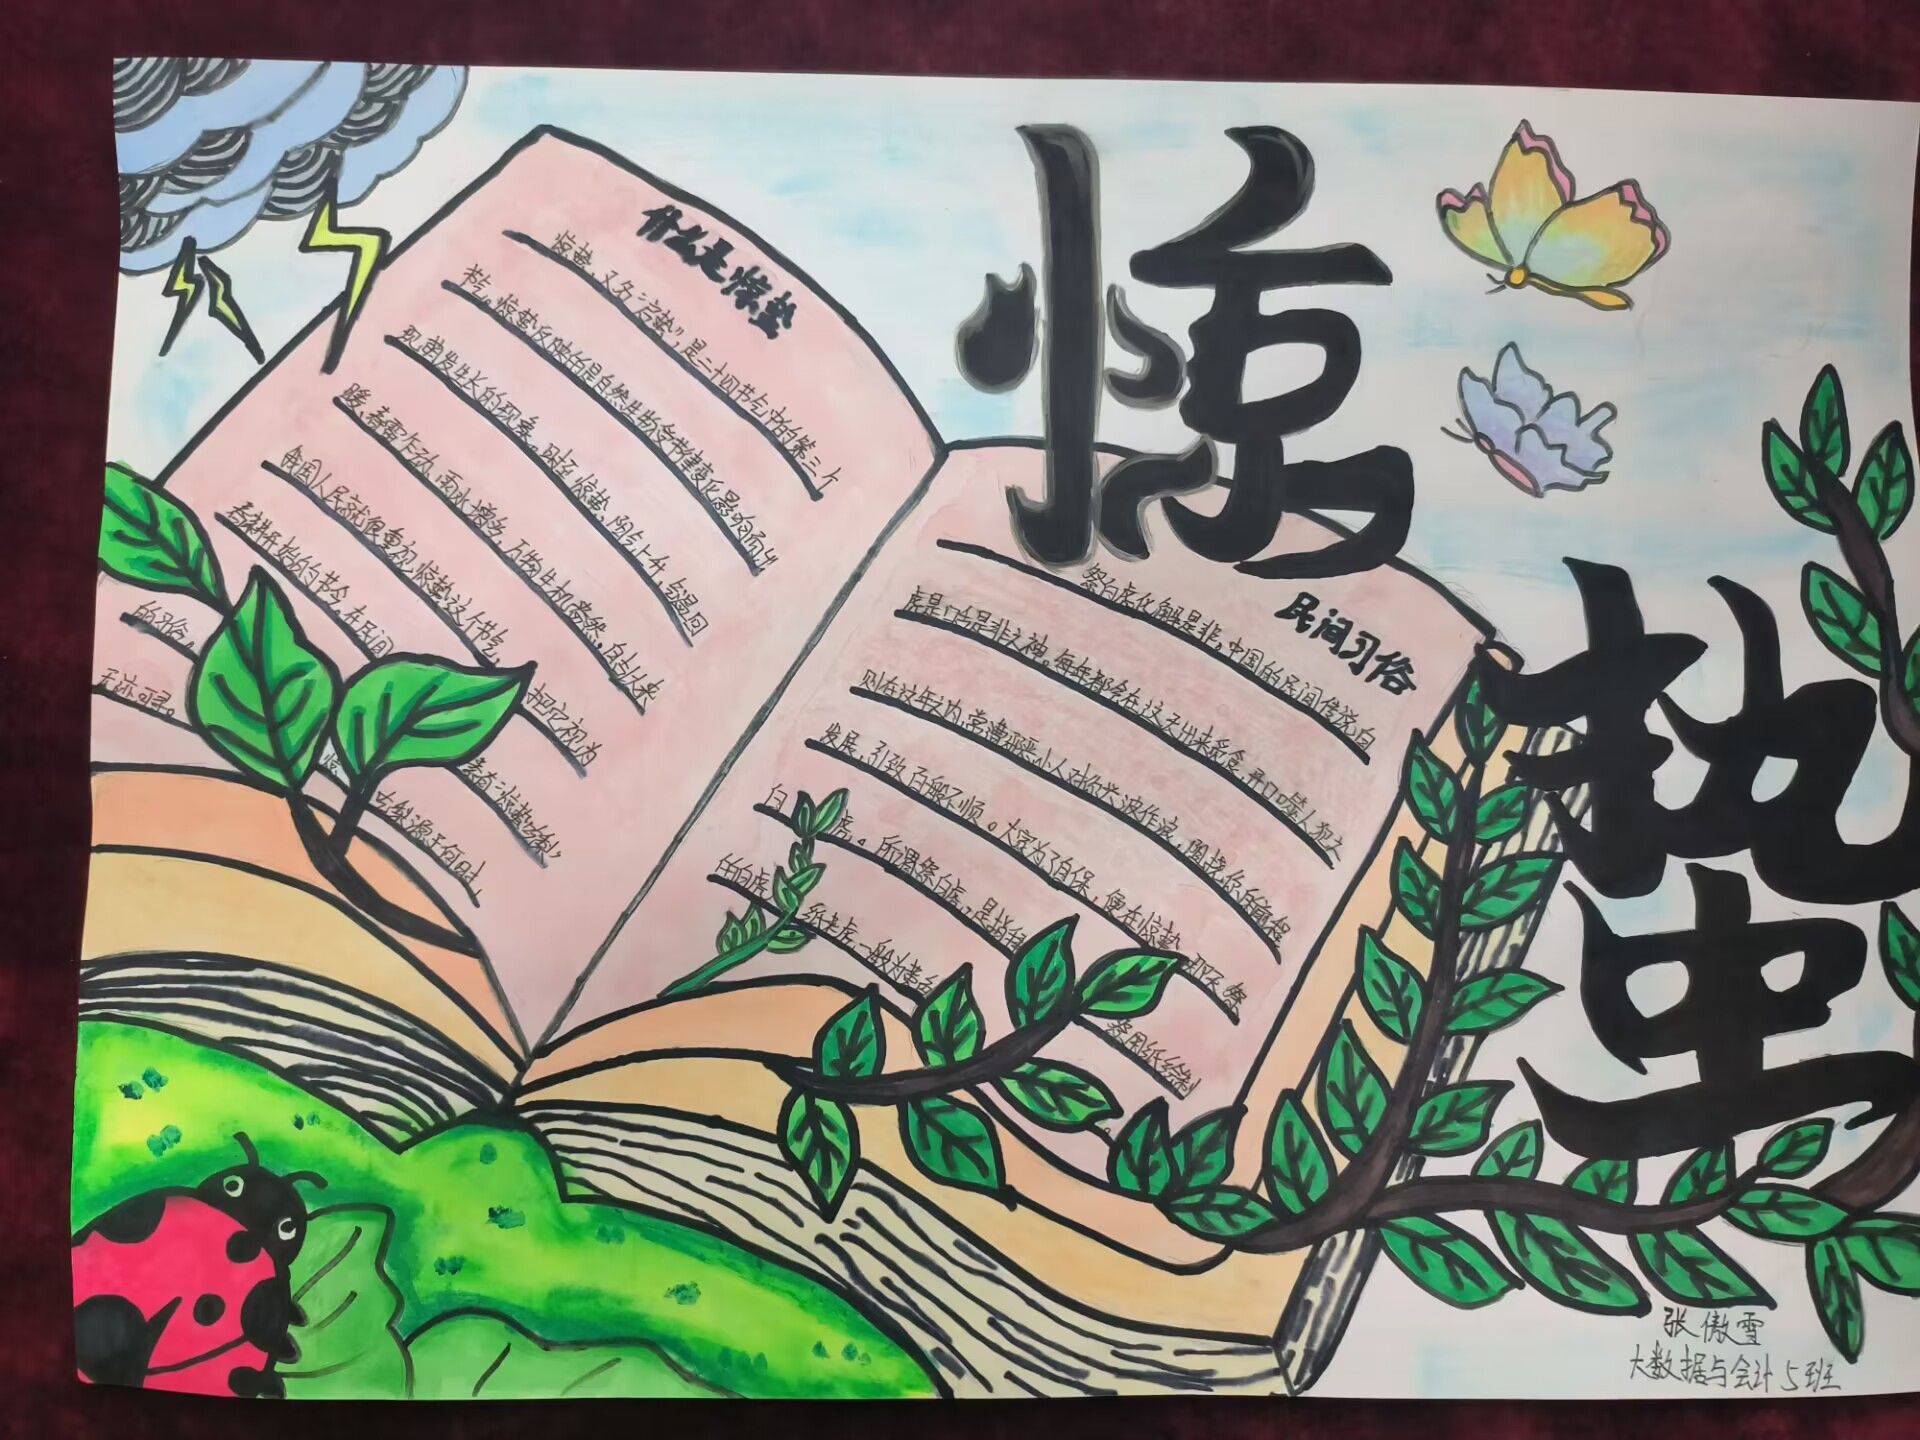 惊
蛰
什么是惊蛰
惊蛰，又名“启蛰”，是二十四节气中的第三个
节气。惊蛰反映的是自然生物受节律变化影响而出
现萌发生长的现象。时至惊蛰，阳气上升，气温回
暖，春雷乍动，雨水增多，万物生机盎然，自古以来
我国人民就很重视惊蛰这个节气，把它视为
春耕开始的节令。在民间
素有“惊蛰吃梨”
的习俗，
吃梨源于何时，
无迹可寻。
民间习俗
祭白虎化解是非。中国的民间传说白
虎是口舌是非之神，每年都会在这天出来觅食，开口噬人，犯之
则在这年之内，常遭邪恶小人对你兴波作浪，阻挠你的前程
发展，引致百般不顺。大家为了自保，便在惊蛰那天祭
白虎。所谓祭白虎，是指拜
祭用纸绘制
的白虎，纸老虎一般为黄色
张傲雪
大数据与会计5班